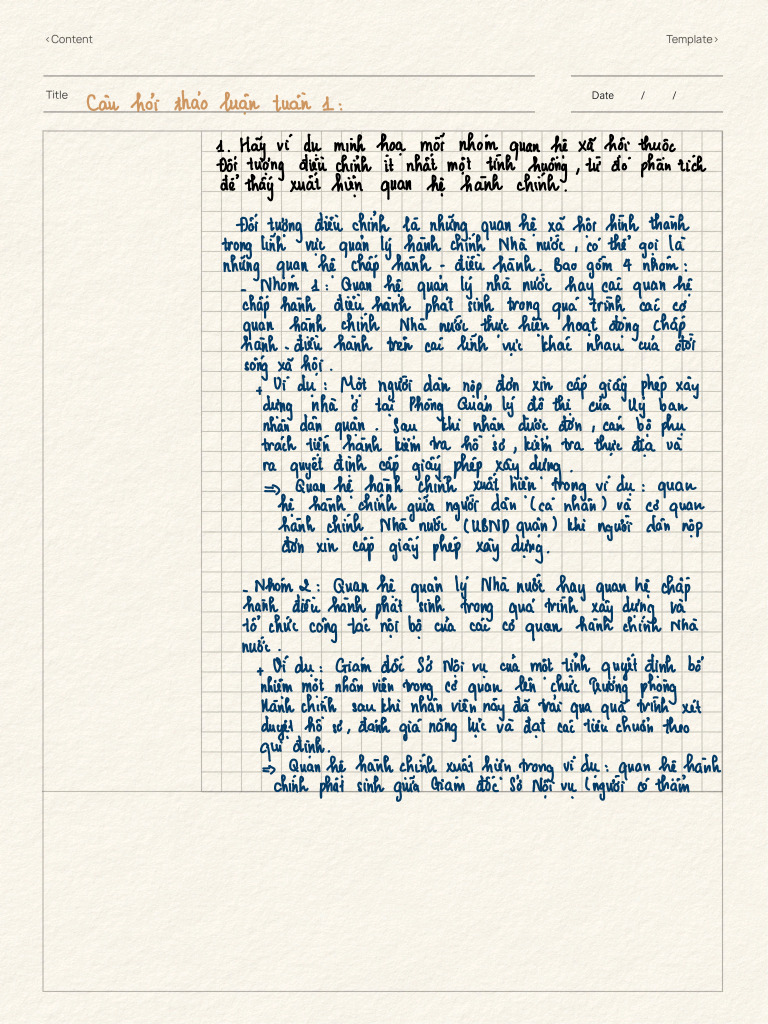 ‹Content
Template›
Title Câu hỏi thảo luận tuần 1:
Date / /
1. Hãy ví dụ minh hoạ mỗi nhóm quan hệ xã hội thuộc
Đối tượng điều chỉnh ít nhất một tình huống, từ đó phân tích
để thấy xuất hiện quan hệ hành chính.
Đối tượng điều chỉnh là những quan hệ xã hội hình thành
trong lĩnh vực quản lý hành chính Nhà nước, có thể gọi là
những quan hệ chấp hành - điều hành. Bao gồm 4 nhóm:
- Nhóm 1: Quan hệ quản lý nhà nước hay các quan hệ
chấp hành điều hành phát sinh trong quá trình các cơ
quan hành chính Nhà nước thực hiện hoạt động chấp
hành - điều hành trên các lĩnh vực khác nhau của đời
sống xã hội.
+ Ví dụ: Một người dân nộp đơn xin cấp giấy phép xây
dựng nhà ở tại Phòng Quản lý đô thị của Uỷ ban
nhân dân quận. Sau khi nhận được đơn, cán bộ phụ
trách tiến hành kiểm tra hồ sơ, kiểm tra thực địa và
ra quyết định cấp giấy phép xây dựng.
⇒ Quan hệ hành chính xuất hiện trong ví dụ: quan
hệ hành chính giữa người dân (cá nhân) và cơ quan
hành chính Nhà nước (UBND quận) khi người dân nộp
đơn xin cấp giấy phép xây dựng.
- Nhóm 2: Quan hệ quản lý Nhà nước hay quan hệ chấp
hành điều hành phát sinh trong quá trình xây dựng và
tổ chức công tác nội bộ của các cơ quan hành chính Nhà
nước.
+ Ví dụ: Giám đốc Sở Nội vụ của một tỉnh quyết định bổ
nhiệm một nhân viên trong cơ quan lên chức Trưởng phòng
Hành chính sau khi nhân viên này đã trải qua quá trình xét
duyệt hồ sơ, đánh giá năng lực và đạt các tiêu chuẩn theo
quy định.
⇒ Quan hệ hành chính xuất hiện trong ví dụ: quan hệ hành
chính phát sinh giữa Giám đốc Sở Nội vụ (người có thẩm